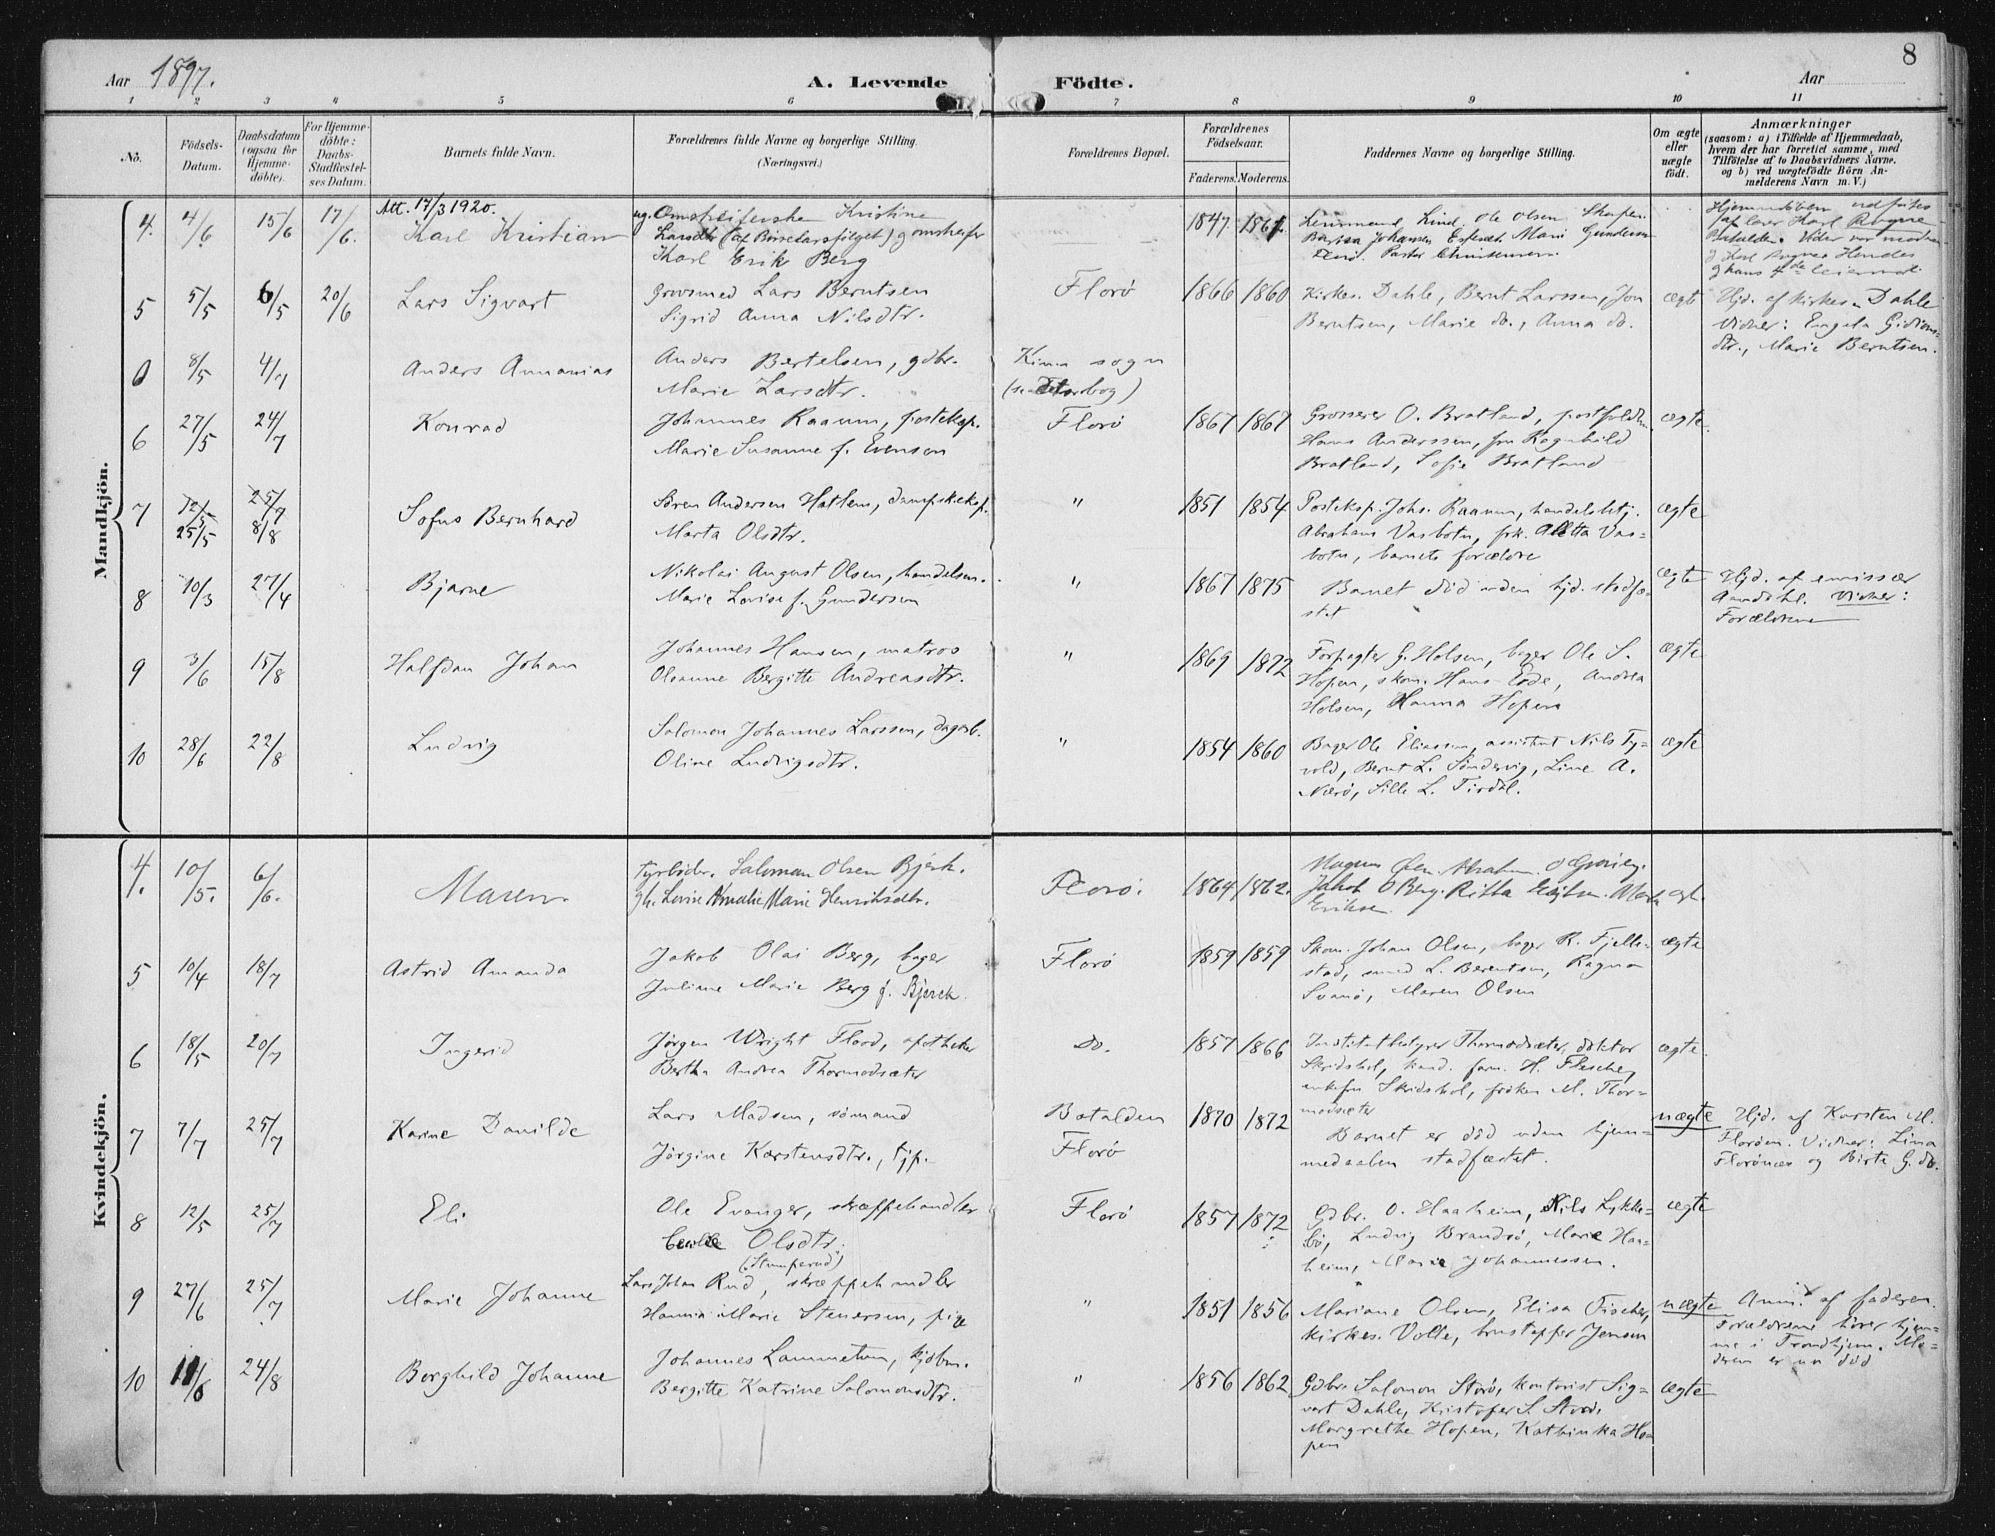 8
Aar 1897. A. Levende Födte. Aar
1 2 3 4 5 6 7 8 9 10 11
No.
Födsels-Datum.
Daabsdatum (ogsaa for Hjemme-döbte).
For Hjemme-döbte: Daabs-Stadfæstel-ses Datum.
Barnets fulde Navn.
Forældrenes fulde Navne og borgerlige Stilling. (Næringsvei.)
Forældrenes Bopæl.
Forældrenes Födselsaar.
Faderens. Moderens.
Faddernes Navne og borgerlige Stilling.
Om ægte eller uægte födt.
Anmærkninger
(saasom: a) i Tilfælde af Hjemmedaab,
hvem der har forrettet samme, med
Tilföielse af to Daabsvidners Navne.
og b) ved uægtefödte Börn An-
melderens Navn m. V.)
Mandkjön.
4. 4/6 15/6 17/6.
Att. 17/3 1920.
Karl Kristian
ug. Kristine
Larsdtr
Karl Erik Berg
1847. 1861.
Ole Olsen
Johansen Mari Gundersen
Pastor Christensen.
Karl
5 5/5 6/5 20/6 Lars Sigvart
Grovsmed Lars Berntsen
Sigrid Anna Nilsdtr.
Florö 1866 1860
Kirkes. Dahle, Bernt Larssen, Jon
Berntsen, Marie do., Anna do.
ægte
Hjd. af kirkes. Dahle
Vidner: Engela Gidions-
dtr., Marie Berntsen.
0 8/5 4/7 Anders Annanias
Anders Bertelsen, gdbr.
Marie Larsdtr.
Kinn sogn
6 27/5 24/7 Konrad
Johannes Raaum, posteksp.
Marie Susanne f. Evensen
Florö 1867 1867
Grosserer O. Bratland,
Hans Anderssen, fru Ragnhild
Bratland, Sofie Bratland
ægte.
7 12/5 25/7
25/5 8/8
Sofus Bernhard
Søren Andersen Hatlem, dampskeksp.
Marta Olsdtr.
" 1851 1854
Posteksp. Johs. Raaum, handelsbetj.
Abraham Vasbotn, frk. Aletta Vas-
botn, barnets forældre
ægte
8 10/3 27/4 Bjarne
Nikolai August Olsen, handelsm.
Marie Lovise f. Gundersen
" 1867 1875
Barnet död uden hjd. stadfæ-
stet
ægte
Hjd. af emissær
Aamdahl. Vidner:
Forældrene
9 3/6 15/8 Halfdan Johan
Johannes Hansen, matros
Olianne Bergitte Andreasdtr.
" 1869 1872
Forpagter G. Holsen, bager Ole S.
Hopen, skom. Hans Eide, Andrea
Holsen, Hanna Hopen
ægte
10 28/6 22/8 Ludvig
Salomon Johannes Larssen, dagarb.
Oline Ludvigsdtr.
" 1854 1860
Bager Ole Eliassen, assistent Nils Ty-
vold, Bernt L. Söndervig, Line A.
Nærö, Sille L. Tirdal.
ægte
Kvindekjön.
4. 10/5. 6/6. Maren.
Fyrböder. Salomon Olsen Bjerk.
gh. Lovise Amalie Marie Henriksdtr.
Florö. 1864 1862.
Jakob O Berg. Ritta
Eriksen.
ægt.
5 10/4 18/7 Astrid Amanda
Jakob Olai Berg, bager
Juliane Marie Berg f. Bjerck.
Florö 1859 1859
Skom. Johan Olsen, bager R. Fjelle-
stad, smed L. Berentsen, Ragna
Svanö, Maren Olsen
ægte
6 18/5 20/7 Ingerid
Jørgen Wright Flood, apotheker
Bertha Andrea Thormodsæter
Do. 1857 1866
Institutbestyrer Thormodsæter, doktor
Skridshol, kand. farm. H. Flesche,
enkefru Skridshol, fröken M. Thor-
modsæter
ægte.
7 7/7 25/7 Karine Danilde
Lars Madsen, sömand
Jörgine Karstensdtr., tjp.
Batalden
Florö
1870 1872
Barnet er död uden hjem-
medaaben stadfæstet.
uægte
Hjd. af Karsten M.
Floröen. Vidner: Lina
Florönæs og Birte G. do.
8 12/5 25/7 Eli
Ole Evanger, skræppehandler
Olsdtr.
Florö 1857 1872
Gdbr. O. Haaheim, Nils Lykke-
bö, Ludvig Brandsö, Marie Haa-
heim, Marie Johannessen.
ægte
9 27/6 25/7 Marie Johanne
(Stumperud)
Lars Johan Rud, skræppehandler
Hanna Marie Stenersen, pige
" 1851 1856
Mariane Olsen, Elisa Fischer,
kirkes. Volle, brustöpfer Jensen
uægte
Anm. af faderen.
Forældrene hörer hjem-
me i Trondhjem. Mo-
deren er nu död
10 11/6 24/8 Borghild Johanne
Johannes Lammetun, kjöbm.
Bergitte Katrine Salomonsdtr.
" 1856 1862
Gdbr. Salomon Storö, kontorist Sig-
vart Dahle, Kristofer S. Storö,
Margrethe Hopen, Kathinka Ho-
pen
ægte